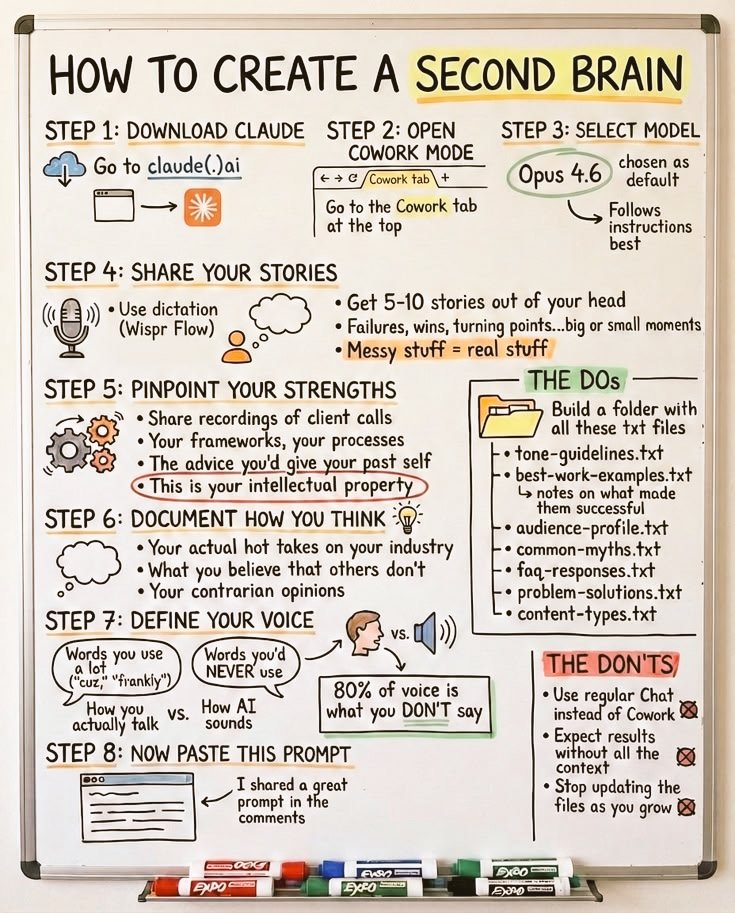 HOW TO CREATE A SECOND BRAIN
STEP 1: DOWNLOAD CLAUDE
Go to claude(.)ai
STEP 2: OPEN
COWORK MODE
Cowork tab
+
Go to the Cowork tab
at the top
STEP 3: SELECT MODEL
Opus 4.6
chosen as
default
Follows
instructions
best
STEP 4: SHARE YOUR STORIES
• Use dictation
(Wispr Flow)
• Get 5-10 stories out of your head
• Failures, wins, turning points...big or small moments
• Messy stuff = real stuff
STEP 5: PINPOINT YOUR STRENGTHS
• Share recordings of client calls
• Your frameworks, your processes
• The advice you'd give your past self
• This is your intellectual property
THE DOs
Build a folder with
all these txt files
• tone-guidelines.txt
• best-work-examples.txt
↳ notes on what made
them successful
• audience-profile.txt
• common-myths.txt
• faq-responses.txt
• problem-solutions.txt
• content-types.txt
STEP 6: DOCUMENT HOW YOU THINK
• Your actual hot takes on your industry
• What you believe that others don't
• Your contrarian opinions
STEP 7: DEFINE YOUR VOICE
Words you use
a lot
("cuz," "frankly")
Words you'd
NEVER use
vs.
How you
actually talk
vs.
How AI
sounds
80% of voice is
what you DON'T say
THE DON'TS
• Use regular Chat
instead of Cowork
• Expect results
without all the
context
• Stop updating the
files as you grow
STEP 8: NOW PASTE THIS PROMPT
I shared a great
prompt in the
comments
EXPO
EXPO
EXPO